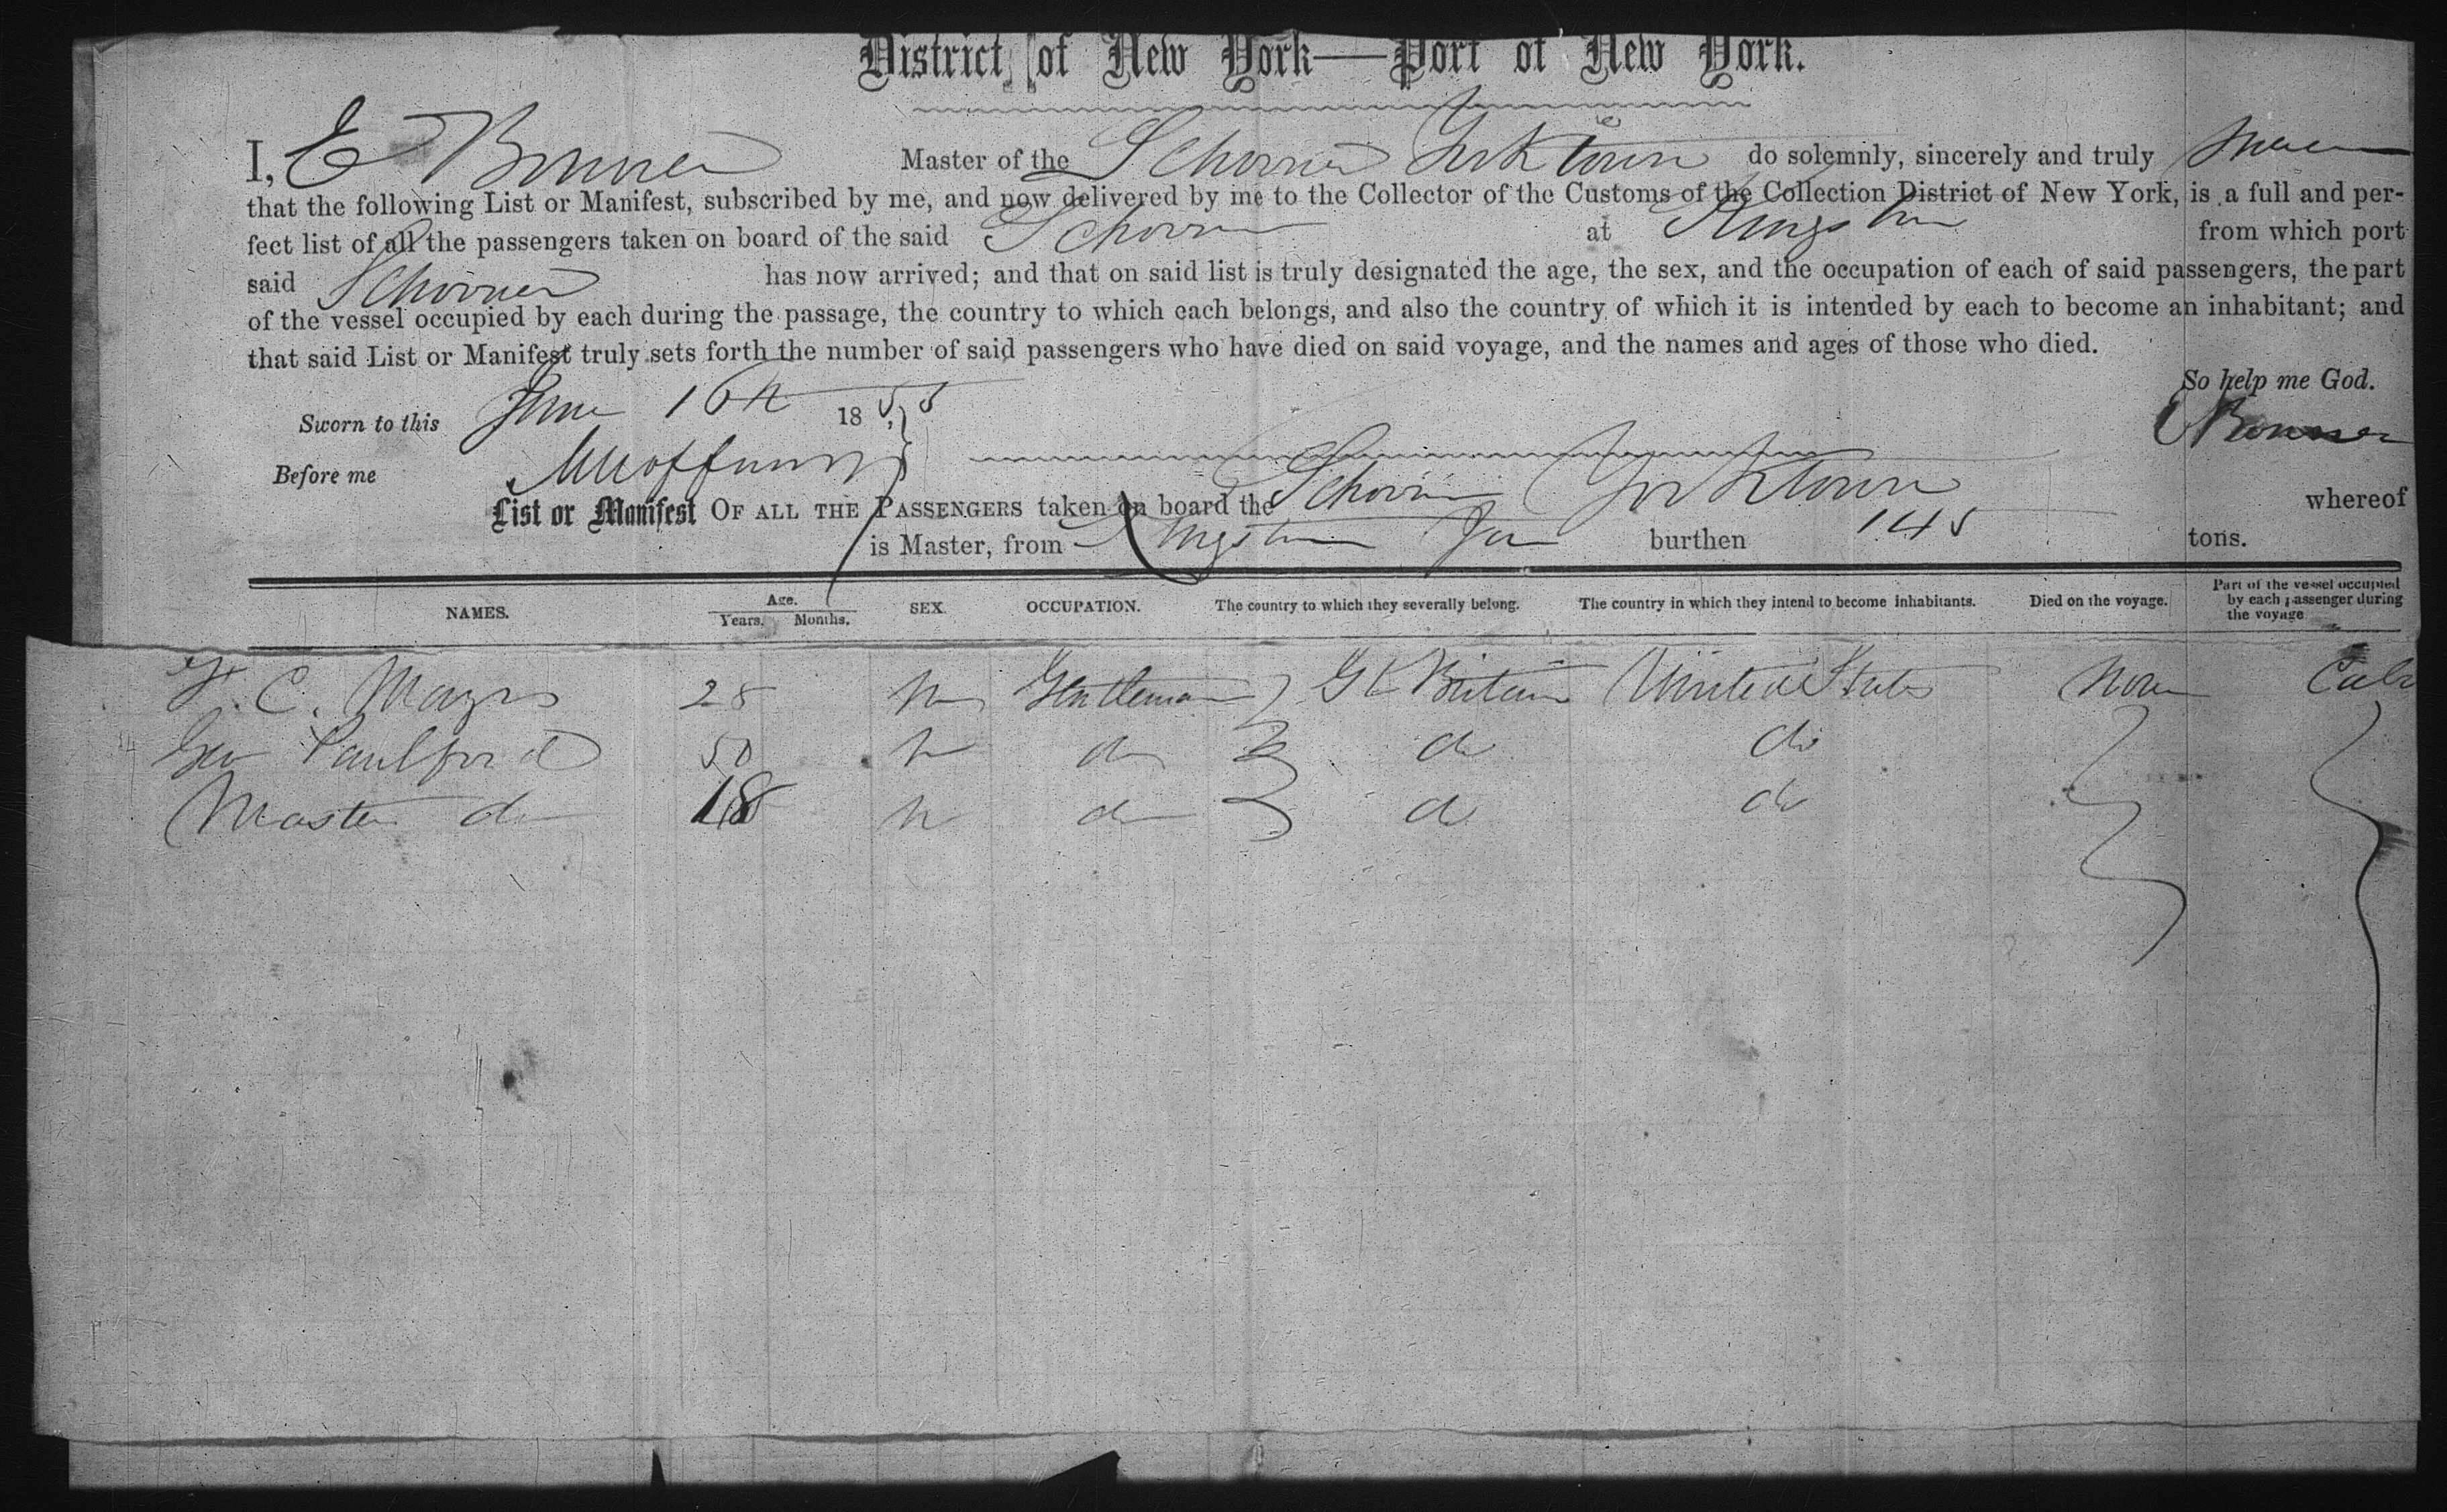 District of New York—Port of New York.
I, E Bonner Master of the Schooner Yorktown do solemnly, sincerely and truly swear
that the following List or Manifest, subscribed by me, and now delivered by me to the Collector of the Customs of the Collection District of New York, is a full and per-
fect list of all the passengers taken on board of the said Schooner at Kingston from which port
said Schooner has now arrived; and that on said list is truly designated the age, the sex, and the occupation of each of said passengers, the part
of the vessel occupied by each during the passage, the country to which each belongs, and also the country of which it is intended by each to become an inhabitant; and
that said List or Manifest truly sets forth the number of said passengers who have died on said voyage, and the names and ages of those who died.
So help me God.
Sworn to this June 16th 1855 E Bonner
Before me
List or Manifest OF ALL THE PASSENGERS taken on board the Schooner Yorktown whereof
is Master, from Kingston Ja burthen 145 tons.
NAMES. Age. Years. Months. SEX. OCCUPATION. The country to which they severally belong. The country in which they intend to become inhabitants. Died on the voyage. Part of the vessel occupied by each passenger during the voyage
C. Mayrs 28 m Gentleman Gt Britain United States None Cabi
Geo Paulford 50 m do do do
Master do 18 m do do do